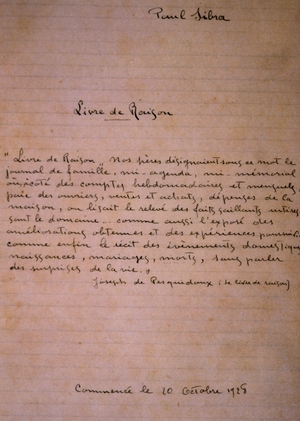 Paul Sibra
Livre de Raison
"Livre de Raison" Nos pères désignaient sous ce mot le
journal de famille, mi-agenda, mi-mémorial
où à côté des comptes hebdomadaires et mensuels
paie des ouvriers, ventes et achats, dépenses de la
maison, on lisait le relevé des faits saillants intéres
sant le domaine - comme aussi l'exposé des
améliorations obtenues et des expériences poursuivies
comme enfin le récit des évènements domestiques
naissances, mariages, morts, sans parler
des surprises de la vie."
Joseph de Pesquidoux (Le livre de raison)
Commencé le 10 Octobre 1928